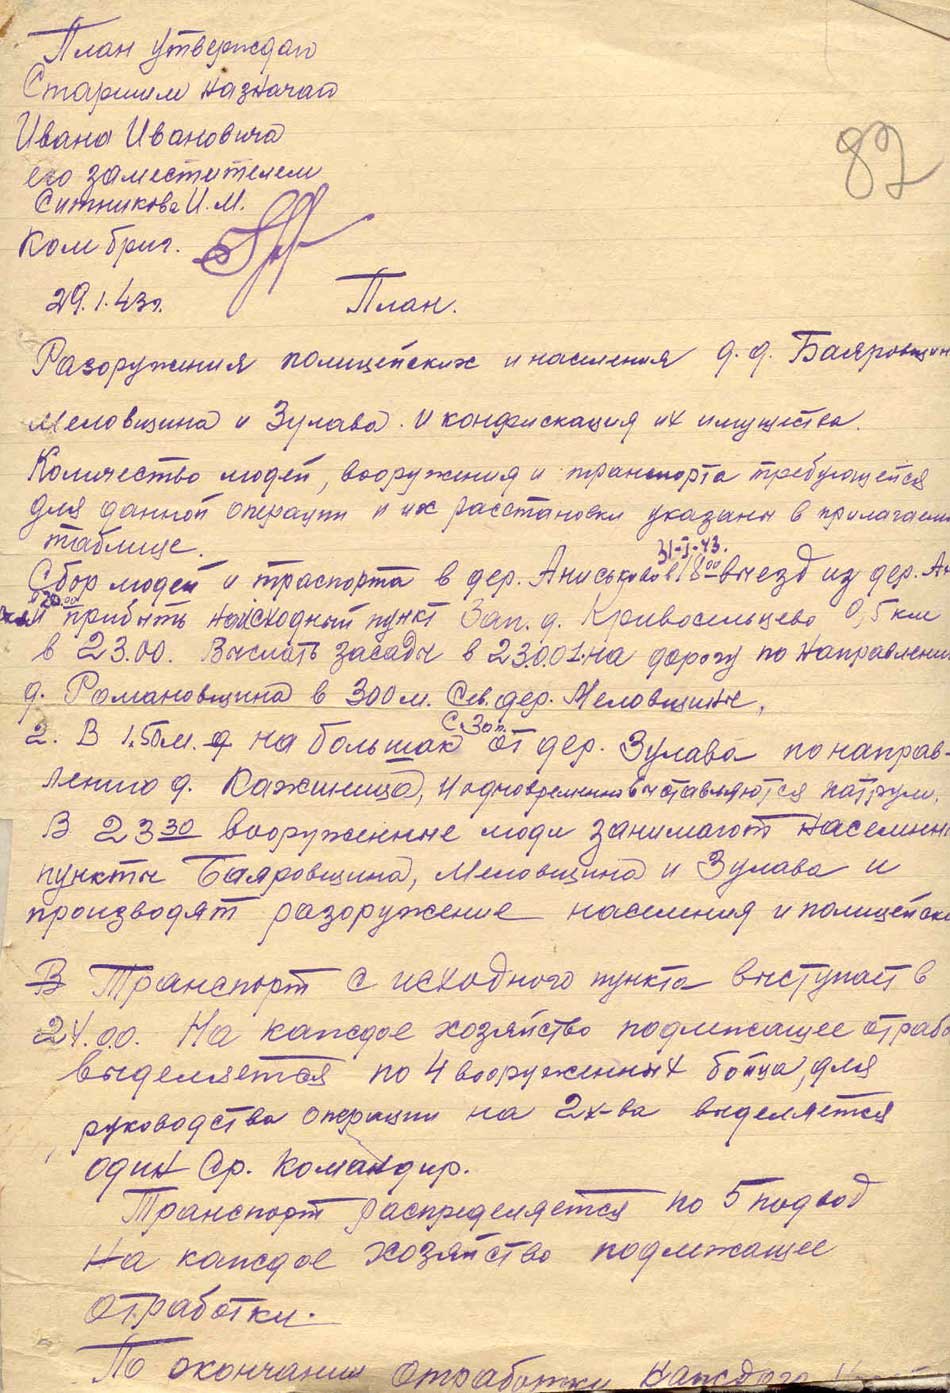 План утверждаю
Старшим назначаю
Ивана Ивановича
его заместителем
Ситникова И.М.
82
Ком бриг.
29.1.43г.
План.
Разоружения полицейских и населения д.д. Баяровщин
Меловщина и Зулава. и конфискация их имущества.
Количество людей, вооружения и транспорта требующейся
для данной операции и их расстановки указаны в прилагаемой
таблице.
31-I-43.
Сбор людей и траспорта в дер. Аниськово в 18 00 выезд из дер. Ан
в 20.00
прибыть на исходный пункт Зап. д. Кривосельцево 0,5 км
в 23.00. Выслать засады в 23.00 1. на дорогу по направлени
д. Романовщина в 300 м. Сев. дер. Меловщины,
С. Зап.
2. В 1.50 м. на большак от дер. Зулава по направ-
лению д. Кажинища, и одновременно выставляются патрули.
В 23 30 вооруженные люди занимают населенн
пункты Баяровщина, Меловщина и Зулава и
производят разоружение населения и полицейски
В Транспорт с исходного пункта выступает в
24.00. На каждое хозяйство подлежащее отрабо
выделяется по 4 вооруженных бойца, для
руководства операции на 2 х-ва выделяется
один Ср. командир.
Транспорт распределяется по 5 подвод
На каждое хозяйство подлежащее
отработки.
По окончании отработки каждого